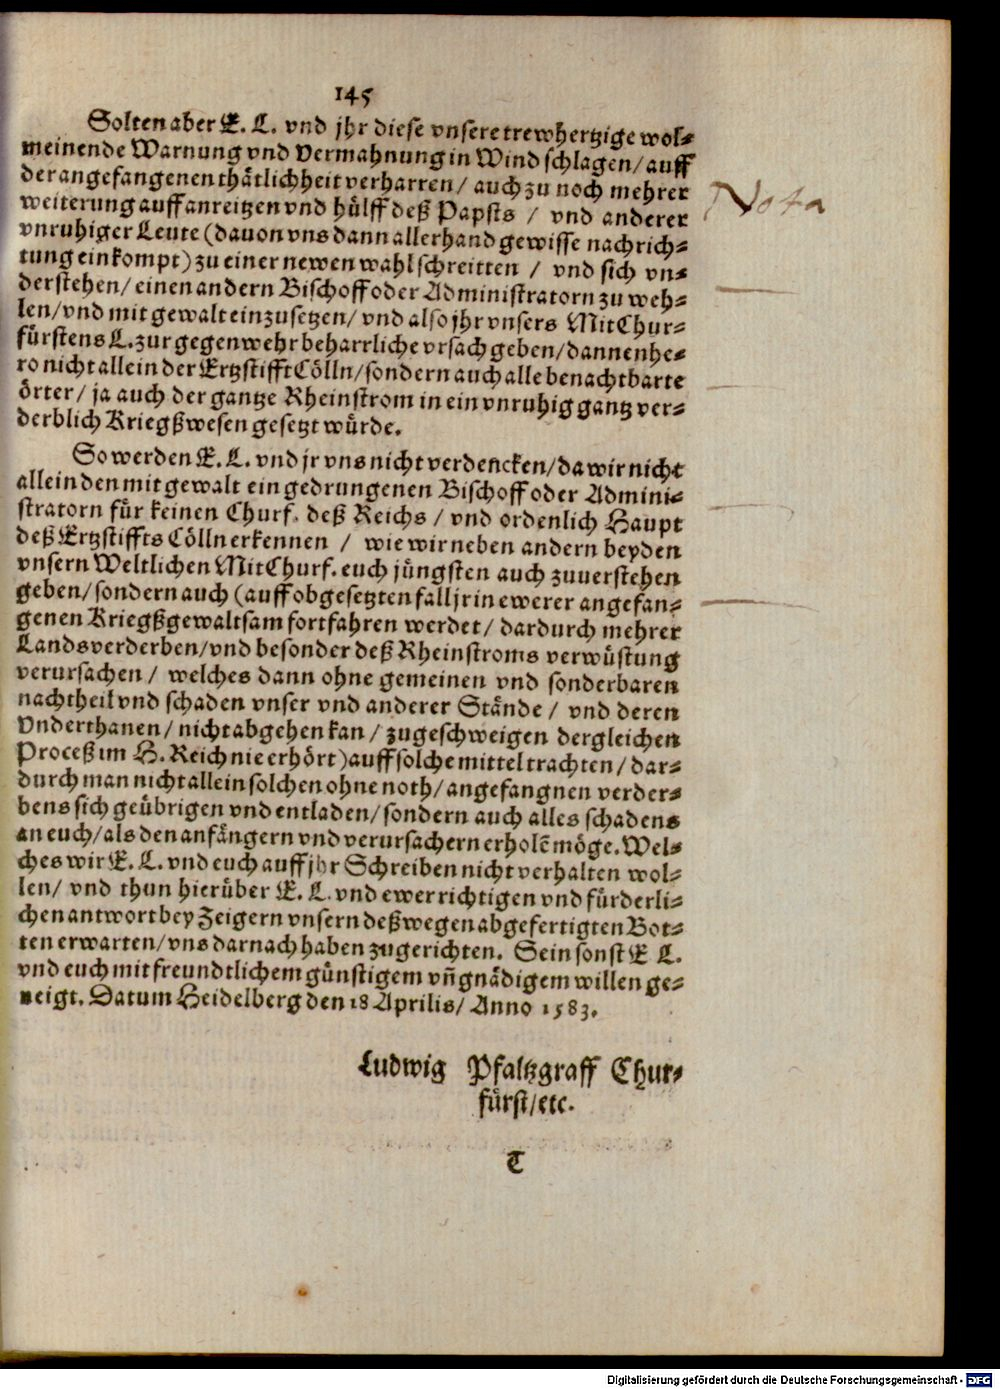 145
Solten aber E. L. vnd jhr diese vnsere trewhertzige wol-
meinende Warnung vnd Vermahnung in Wind schlagen / auff
der angefangenen thätlichheit verharren / auch zu noch mehrer
weiterung auff anreitzen vnd hülff deß Papsts / vnd anderer
vnruhiger Leute (dauon vns dann allerhand gewisse nachrich-
tung einkompt) zu einer newen wahl schreitten / vnd sich vn-
derstehen / einen andern Bischoff oder Administratorn zu weh-
len / vnd mit gewalt einzusetzen / vnd also jhr vnsers MitChur-
fürstens L. zur gegenwehr beharrliche vrsach geben / dannenhe-
ro nicht allein der Ertzstifft Cölln / sondern auch alle benachtbarte
örter / ja auch der gantze Rheinstrom in ein vnruhig gantz ver-
derblich Kriegßwesen gesetzt würde.
So werden E. L. vnd jr vns nicht verdencken / da wir nicht
allein den mit gewalt eingedrungenen Bischoff oder Admini-
stratorn für keinen Churf. deß Reichs / vnd ordenlich Haupt
deß Ertzstiffts Cölln erkennen / wie wir neben andern beyden
vnsern Weltlichen MitChurf. euch jüngsten auch zuuerstehen
geben / sondern auch (auff obgesetzten fall jr in ewerer angefan-
genen Kriegßgewaltsam fortfahren werdet / dardurch mehrer
Landsverderben / vnd besonder deß Rheinstroms verwüstung
verursachen / welches dann ohne gemeinen vnd sonderbaren
nachtheil vnd schaden vnser vnd anderer Stände / vnd deren
Vnderthanen / nicht abgehen kan / zugeschweigen dergleichen
Proceß im H. Reich nie erhört) auff solche mittel trachten / dar-
durch man nicht allein solchen ohne noth / angefangnen verder-
bens sich geübrigen vnd entladen / sondern auch alles schadens
an euch / als den anfängern vnd verursachern erholē möge. Wel-
ches wir E. L. vnd euch auff jhr Schreiben nicht verhalten wol-
len / vnd thun hierüber E. L. vnd ewer richtigen vnd fürderli-
chen antwort bey Zeigern vnsern deßwegen abgefertigten Bot-
ten erwarten / vns darnach haben zugerichten. Sein sonst E L.
vnd euch mit freundtlichem günstigem vn̄ gnädigem willen ge-
neigt. Datum Heidelberg den 18 Aprilis / Anno 1583.
Ludwig Pfaltzgraff Chur-
fürst / etc.
T
Nota
Digitalisierung gefördert durch die Deutsche Forschungsgemeinschaft - DFG